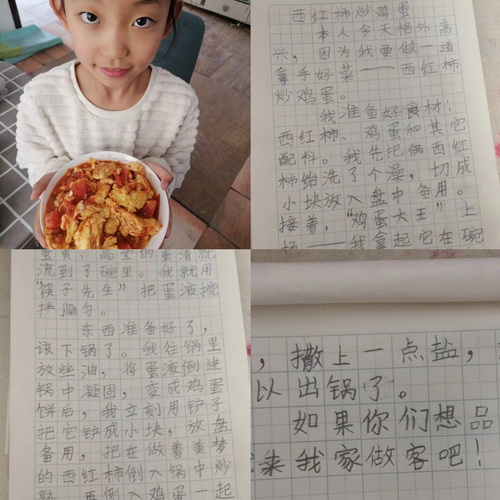 西红柿炒鸡蛋
本人今天格外高
兴，因为我要做一道
拿手好菜——西红柿
炒鸡蛋。
我准备好食材：
西红柿、鸡蛋和其它
配料。我先把俩西红
柿给洗了个澡，切成
小块放入盘中备用。
接着，“鸡蛋大王”上
场——我拿起它在碗
流到了碗里。我就用
“筷子先生”把蛋液搅
拌均匀。
东西准备好了，
该下锅了。我往锅里
放些油，将蛋液倒进
锅中凝固，变成鸡蛋
饼后，我立刻用铲子
把它铲成小块，放盘
备用，把在做着美梦
的西红柿倒入锅中炒
熟，再倒入鸡蛋一起
，撒上一点盐，
以出锅了。
如果你们想品
来我家做客吧！